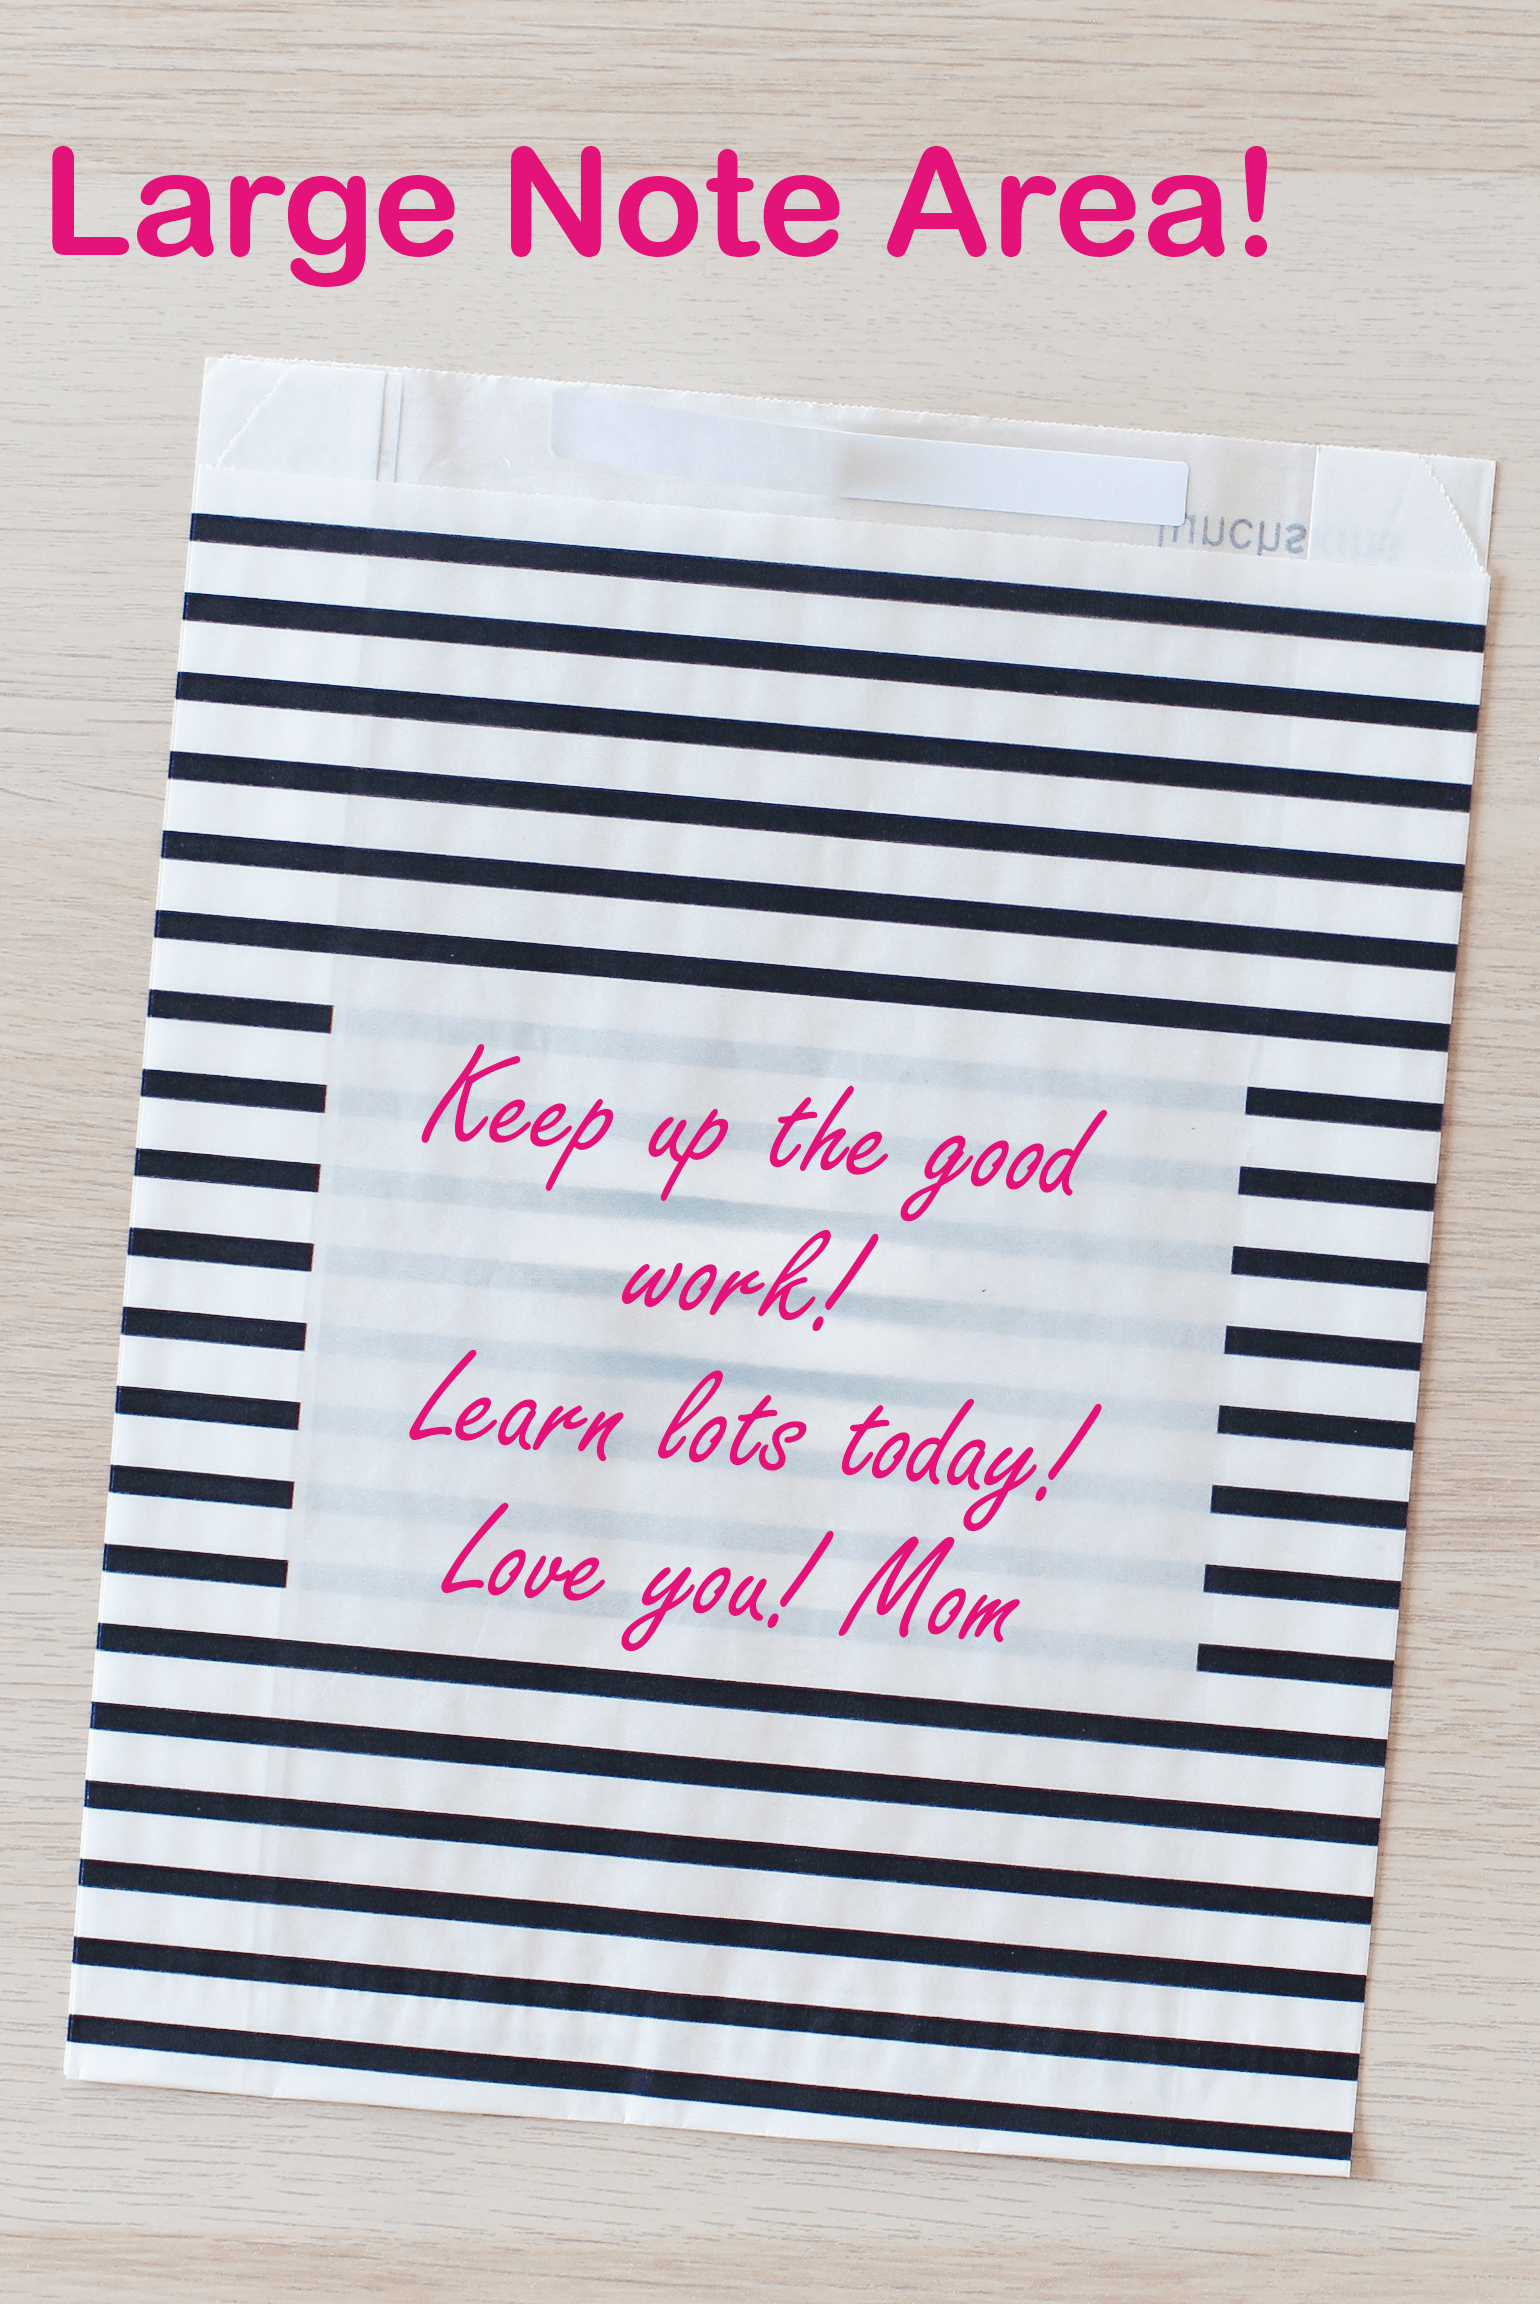 Large Note Area!
Keep up the good
work!
Learn lots today!
Love you! Mom